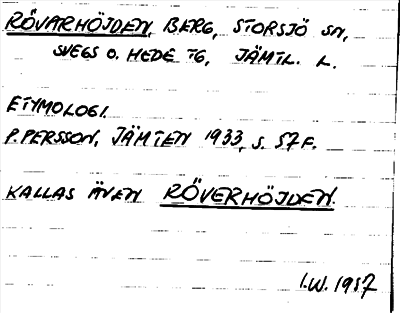 RÖVARHÖJDEN, BERG, STORSJÖ SN,
SVEGS O. HEDE TG, JÄMTL. L.
ETYMOLOGI.
P. PERSSON, JÄMTEN 1933, S. 57 F.
KALLAS ÄVEN RÖVERHÖJDEN.
I.W. 1987